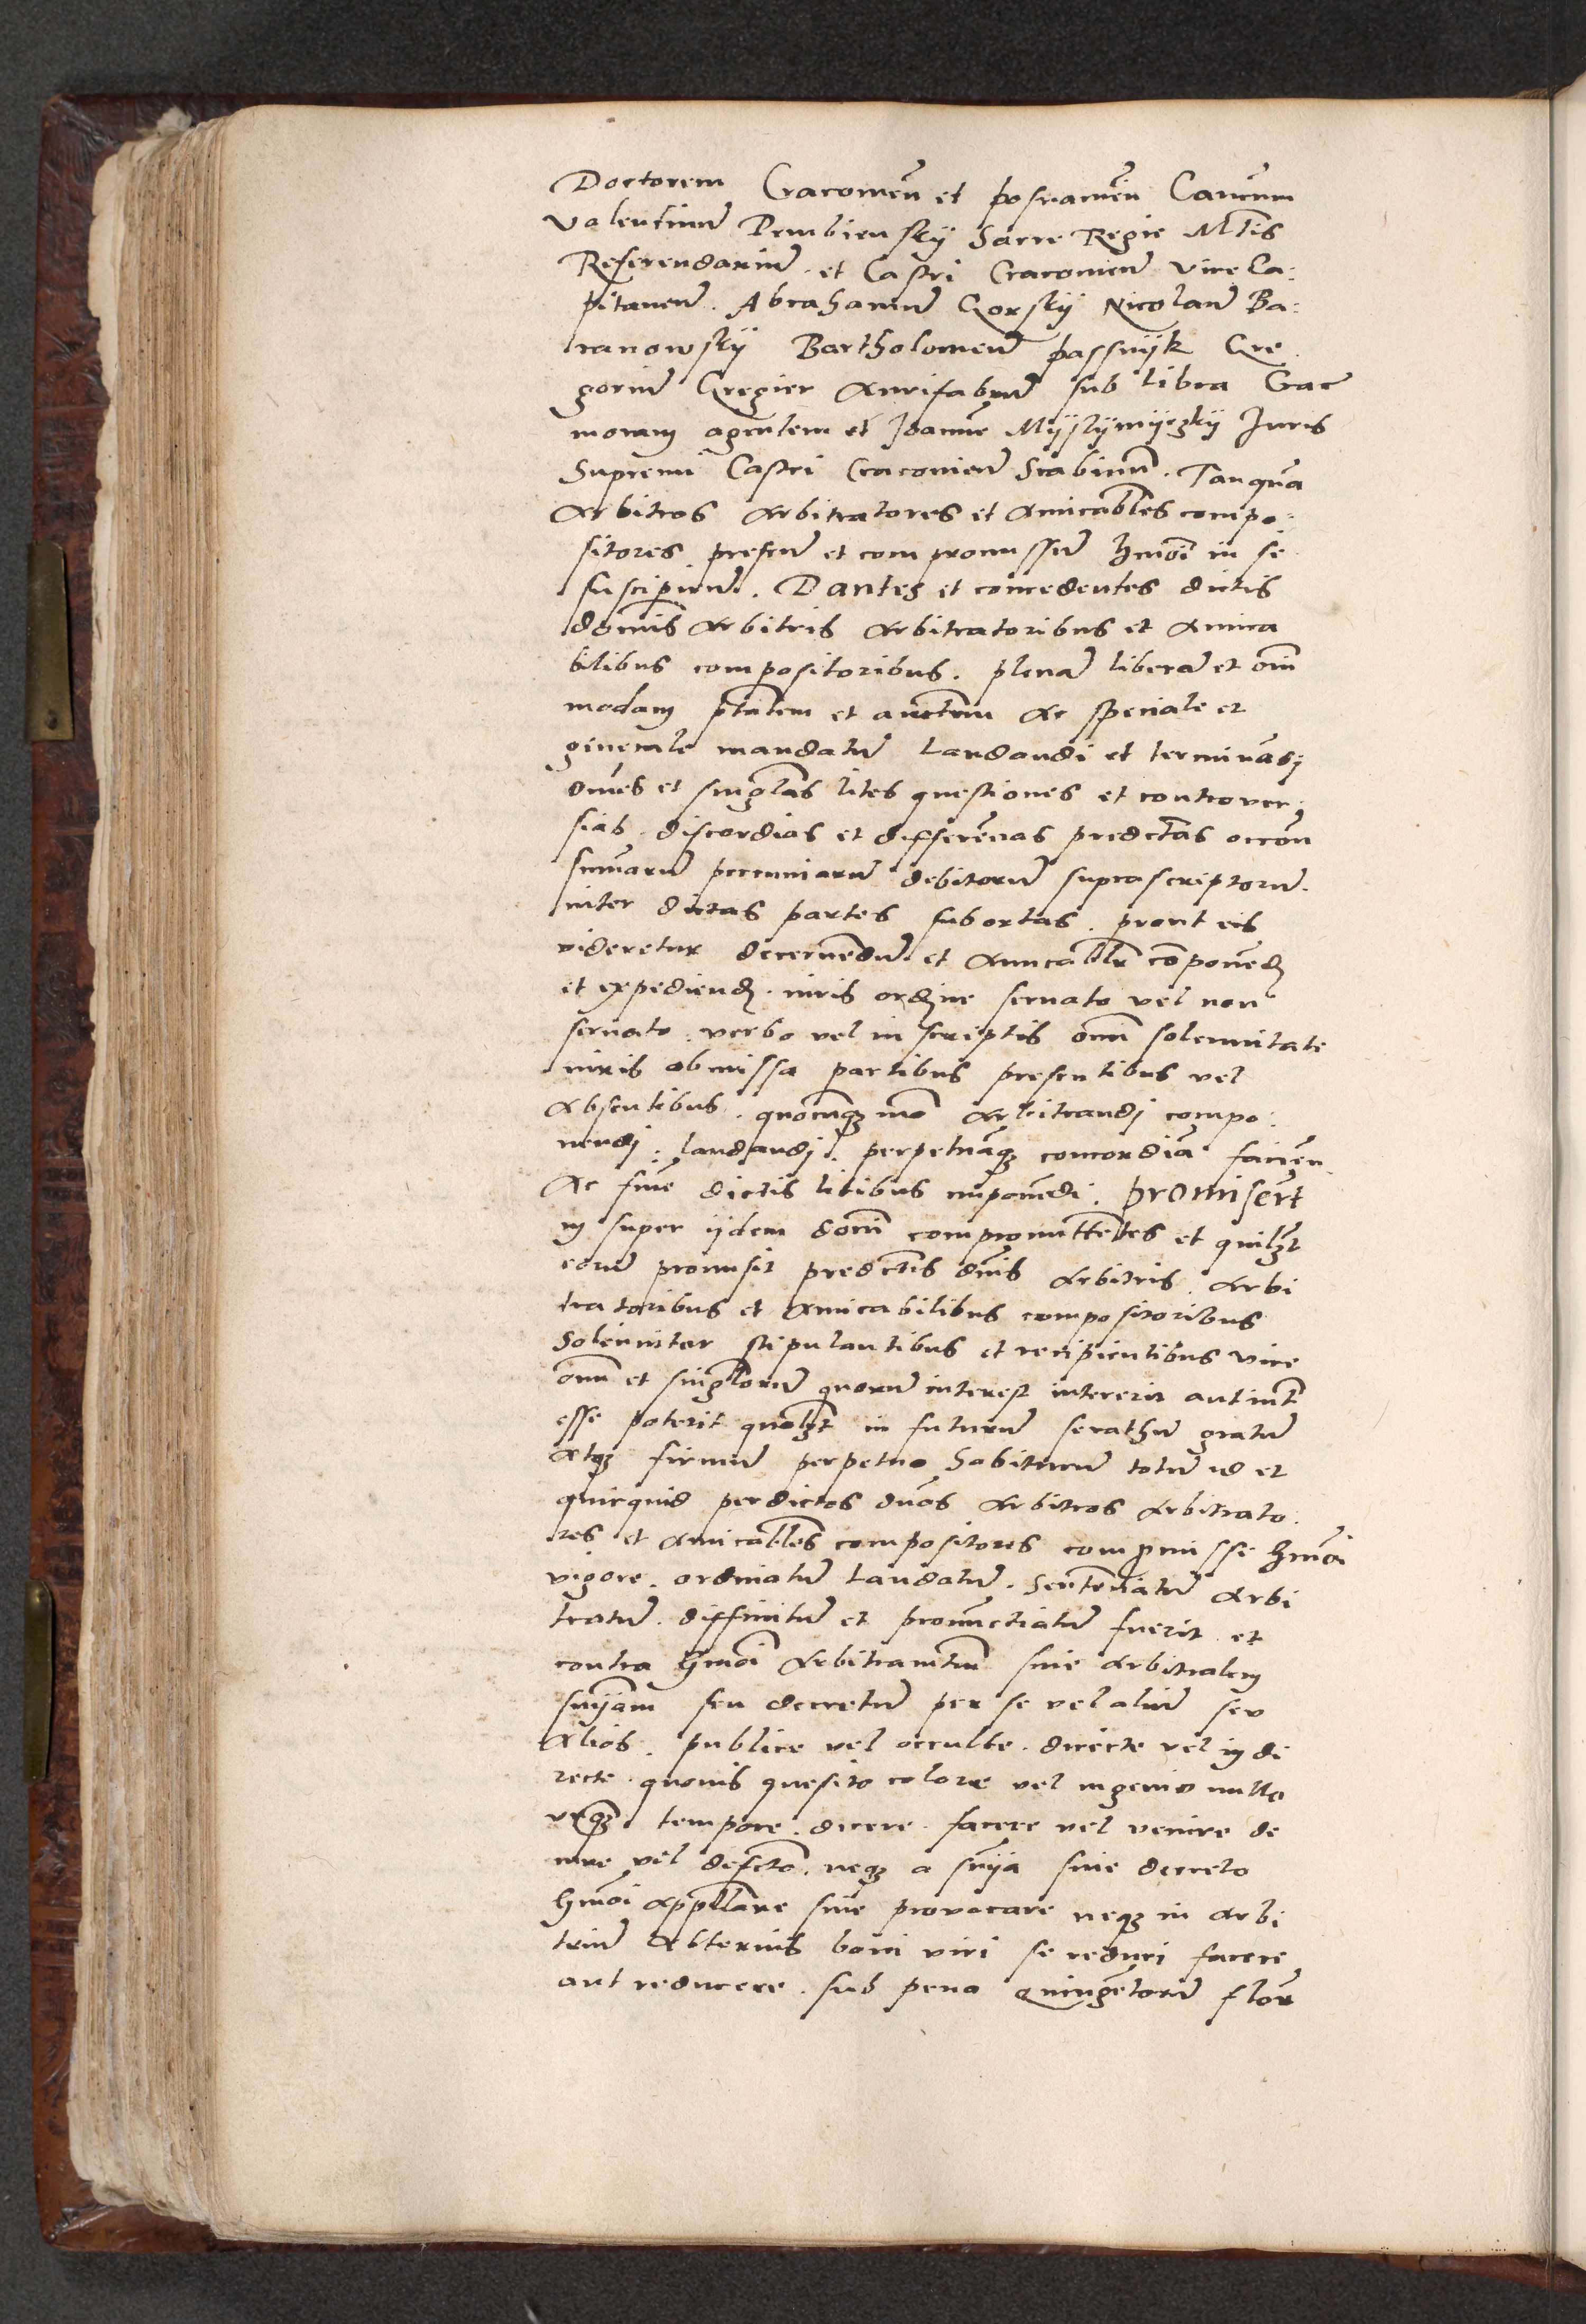 Doctorem Cracovień et posnanień Cancum
Valentinū Dembienskÿ Sacre Regie Mtis
Referendariū. et Castri Cracovień vice Ca:
pitaneū. Abrahamū Gorskÿ Nicolaū Ba:
ranowskÿ Bartholomeū passnÿk Gre
goriū Gregier Aurifabrū sub libra Crac
moram agentem et Joannē Mÿslÿmÿczkÿ Juris
Supremi Castri Cracovień Scabinū. Tanquā
Arbitros Arbitratores et Amicables compo:
sitores. presens et compromissum hmōi in se
suscipieñ. Dantes et concedentes dictis
dominis Arbitris Arbitratoribus et Amica
bilibus compositoribus. plenā liberā et oīm
modam ptātem et auctem Ac speciale et
generale mandatū Laudandi et terminādj
omēs et singlas lites questiones et controver:
sias. discordias et differēncias predctas occōn
summarū pecuniarū debitorū suprascriptorū.
inter dictas partes subortas. prout eis
videretur decernendū et Amicablr cōponend
et expediend. iuris ordine servato vel non
servato. verbo vel in scriptis omi solennitate
iuris obmissa partibus presentibus vel
Absentibus. quocunqz mō Arbitrandj compo:
nendj. laudandj. perpetuāqz concordiā facień
Ac finē dictis litibus imponēdi. promisert
in super ijdem domi compromittētes et quilzt
eorū promisit predctis dnis Arbitris. Arbi
tratoribus et Amicabilibus compositoribus
Solenniter stipulantibus et recipientibus vice
oīm et singlorū quorū interest intererit aut int
esse poterit quolzt in futurū se rathū gratū
atqz firmū perpetuo habiturū totū id et
quicquid per dictos dnos Arbitros Arbitrato:
res et Amicables compositores compmisse hmōi
vigore. ordinatū Laudatū. Sententiatū Arbi
tratū. diffinitū et pronunctiatū fuerit et
contra hmōi Arbitramtum sive arbitralem
snÿam seu decretū per se vel aliū seu
Alios. publice vel occulte. directe vel in di
recte. quovis quesito colore vel ingenio nullo
unqz tempore. dicere. facere vel venire de
iure vel defcto. neqz a snÿa sive decreto
hmōi Appllare sive provocare neqz in Arbi
triū Alterius boni viri se reduci facere
aut reducere. sub pena Quingētorū flor